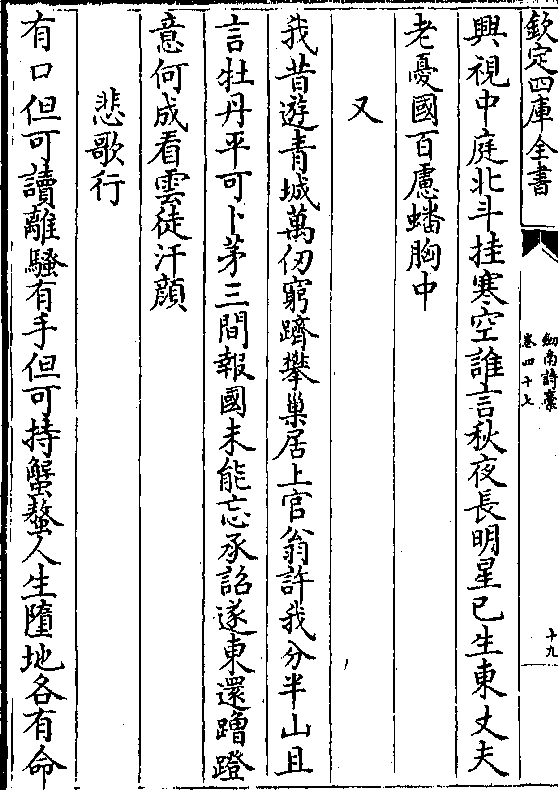 欽定四庫全書
劍南詩藁
卷四十七
十九
興視中庭北斗挂寒空誰言秋夜長明星已生東丈夫
老憂國百慮蟠胸中
又
我昔遊青城萬仞窮躋攀巢居上官翁許我分半山且
言牡丹平可卜茅三間報國未能忘承詔遂東還蹭蹬
意何成看雲徒汗顔
悲歌行
有口但可讀離騷有手但可持蟹螯人生墮地各有命